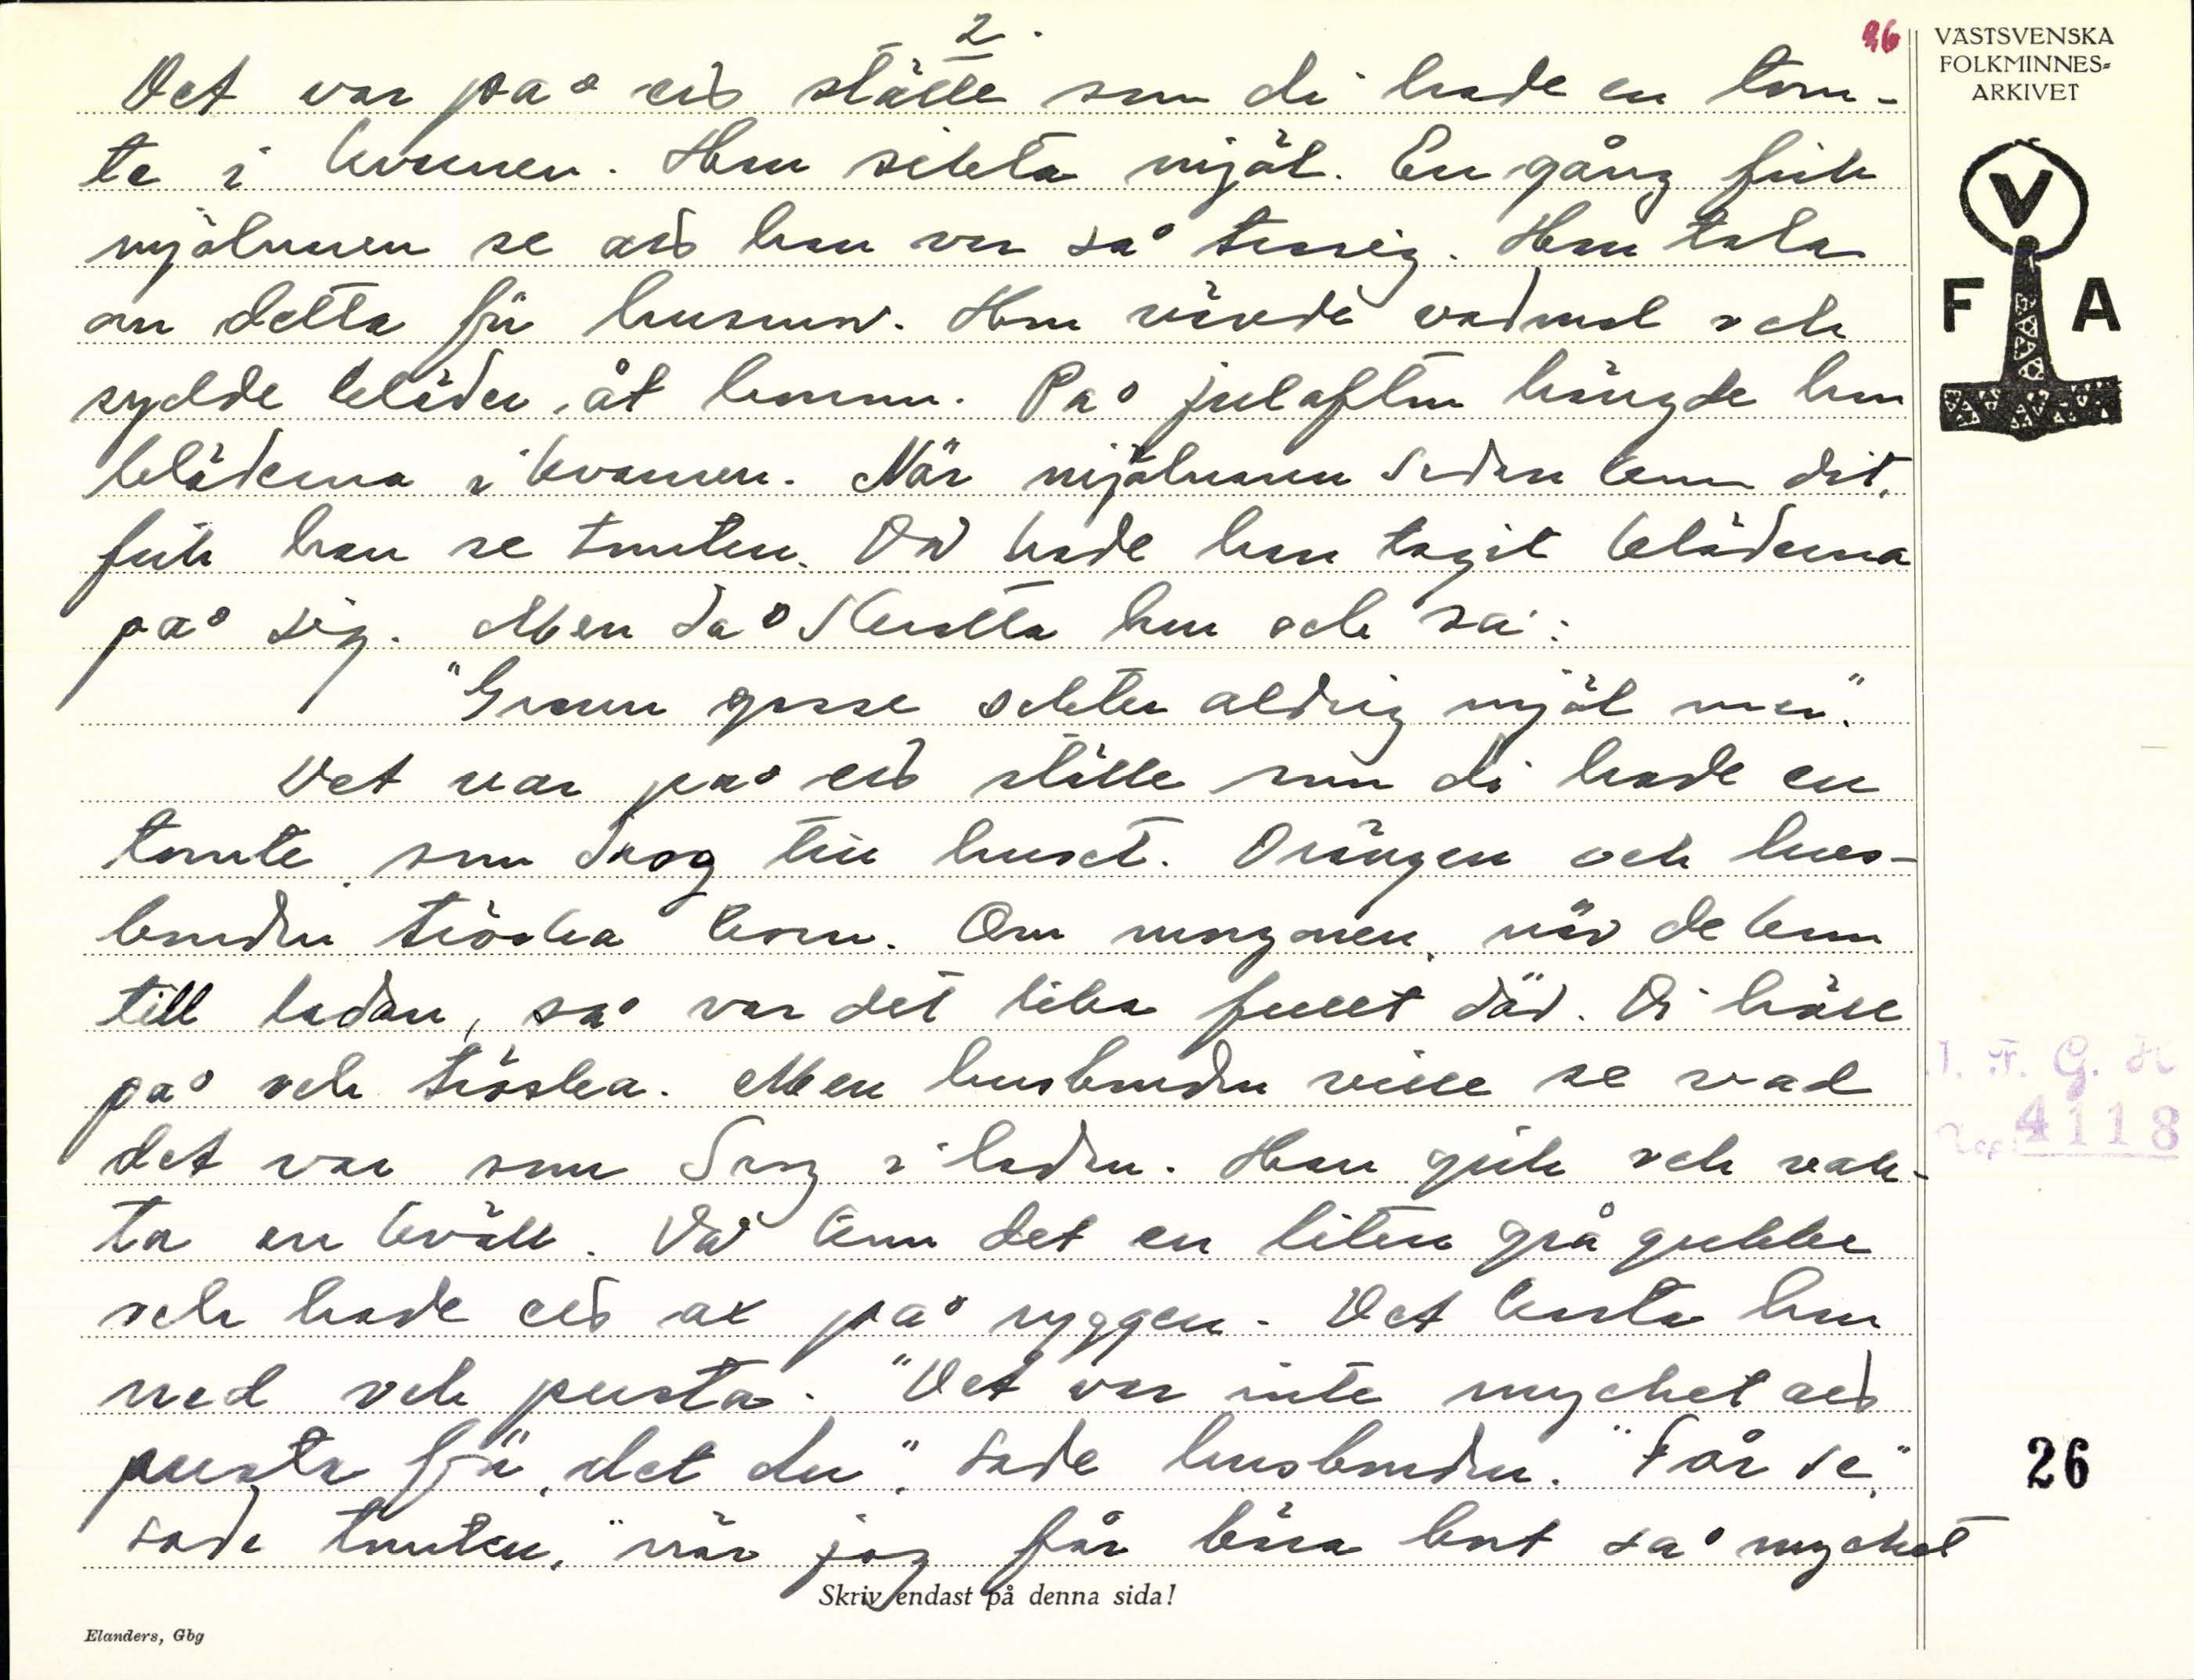 2.
26
VÄSTSVENSKA
FOLKMINNES-
ARKIVET
V
F A
Det var på ett ställe som di hade en tom-
te i kvarnen. Han sikta mjöl. En gång fick
mjölnaren se att han var så trasig. Han tala
om detta för husmor. Hon vävde vadmal och
sydde kläder åt honom. På julafton hängde hon
kläderna i kvarnen. När mjölnaren sedan kom dit,
fick han se tomten. Då hade han tagit kläderna
på sig. Men då skratta han och sa:
"Grann gosse sikter aldrig mjöl mer".
Det var på ett ställe som di hade en
tomte som drog till huset. Drängen och hus-
bonden tröska korn. Om morgonen, när de kom
till ladan, så var det lika fullt där. Di höll
på och tröska. Men husbonden ville se vad
det var som drog i ladan. Han gick och vak-
ta en kväll. Då kom det en liten grå gubbe
och hade ett ax på ryggen. Det kasta han
ned och pusta. "Det var inte mycket att
pusta för, det du", sade husbonden. "Får se",
sade tomten, "när jag får bära bort så mycket
I. F. G. H
4118
26
Skriv endast på denna sida!
Elanders, Gbg